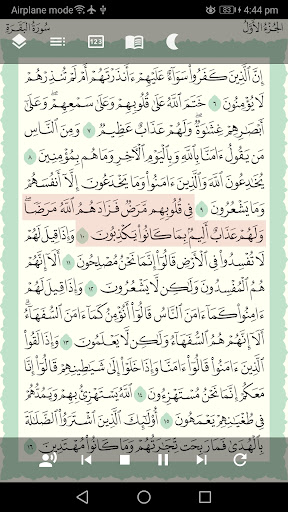 Airplane mode 91% 4:44 pm
سُورَةُ البَقَرَةِ الجُزْءُ الأَوَّلُ
123
إِنَّ ٱلَّذِينَ كَفَرُوا۟ سَوَآءٌ عَلَيْهِمْ ءَأَنذَرْتَهُمْ أَمْ لَمْ تُنذِرْهُمْ
لَا يُؤْمِنُونَ ٦ خَتَمَ ٱللَّهُ عَلَىٰ قُلُوبِهِمْ وَعَلَىٰ سَمْعِهِمْ ۖ وَعَلَىٰٓ
أَبْصَٰرِهِمْ غِشَٰوَةٌ ۖ وَلَهُمْ عَذَابٌ عَظِيمٌ ٧ وَمِنَ ٱلنَّاسِ
مَن يَقُولُ ءَامَنَّا بِٱللَّهِ وَبِٱلْيَوْمِ ٱلْءَاخِرِ وَمَا هُم بِمُؤْمِنِينَ ٨
يُخَٰدِعُونَ ٱللَّهَ وَٱلَّذِينَ ءَامَنُوا۟ وَمَا يَخْدَعُونَ إِلَّآ أَنفُسَهُمْ
وَمَا يَشْعُرُونَ ٩ فِى قُلُوبِهِم مَّرَضٌ فَزَادَهُمُ ٱللَّهُ مَرَضًا ۖ
وَلَهُمْ عَذَابٌ أَلِيمٌۢ بِمَا كَانُوا۟ يَكْذِبُونَ ١٠ وَإِذَا قِيلَ لَهُمْ
لَا تُفْسِدُوا۟ فِى ٱلْأَرْضِ قَالُوٓا۟ إِنَّمَا نَحْنُ مُصْلِحُونَ ١١ أَلَآ
إِنَّهُمْ هُمُ ٱلْمُفْسِدُونَ وَلَٰكِن لَّا يَشْعُرُونَ ١٢ وَإِذَا قِيلَ لَهُمْ
ءَامِنُوا۟ كَمَآ ءَامَنَ ٱلنَّاسُ قَالُوٓا۟ أَنُؤْمِنُ كَمَآ ءَامَنَ ٱلسُّفَهَآءُ ۗ
أَلَآ إِنَّهُمْ هُمُ ٱلسُّفَهَآءُ وَلَٰكِن لَّا يَعْلَمُونَ ١٣ وَإِذَا لَقُوا۟
ٱلَّذِينَ ءَامَنُوا۟ قَالُوٓا۟ ءَامَنَّا وَإِذَا خَلَوْا۟ إِلَىٰ شَيَٰطِينِهِمْ قَالُوٓا۟ إِنَّا
مَعَكُمْ إِنَّمَا نَحْنُ مُسْتَهْزِءُونَ ١٤ ٱللَّهُ يَسْتَهْزِئُ بِهِمْ وَيَمُدُّهُمْ
فِى طُغْيَٰنِهِمْ يَعْمَهُونَ ١٥ أُو۟لَٰٓئِكَ ٱلَّذِينَ ٱشْتَرَوُا۟ ٱلضَّلَٰلَةَ
بِٱلْهُدَىٰ فَمَا رَبِحَت تِّجَٰرَتُهُمْ وَمَا كَانُوا۟ مُهْتَدِينَ ١٦